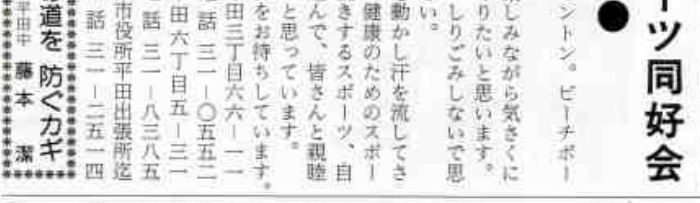 ーツ同好会
●
ントン。ビーチボー
楽しみながら気さくに
りたいと思います。
しりごみしないで思
い。
動かし汗を流してさ
健康のためのスポー
きするスポーツ、自
んで、皆さんと親睦
と思っています。
をお待ちしています。
田三丁目六六ー一一
話 三一ー〇五五二
田六丁目五ー三一
話 三一ー八三八五
市役所平田出張所迄
話 三一ー二五一四
道を 防ぐカギ
平田中 藤本 潔